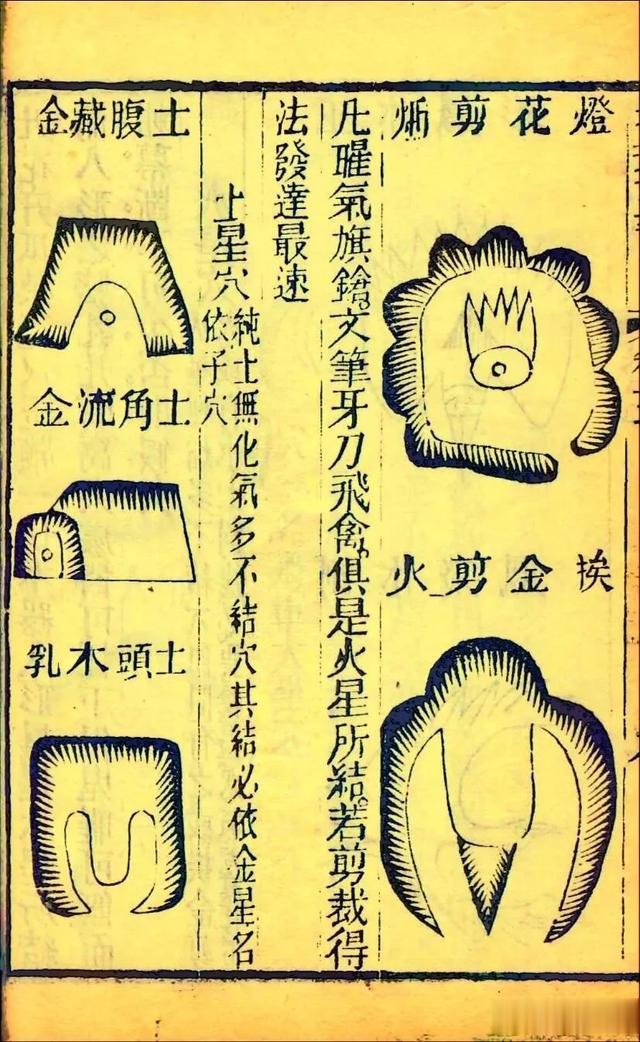 燈花剪
挨金剪火
凡曜氣旗鎗。文筆牙刀飛禽。俱是火星所結。若剪裁得
法發達最速
土星穴
純土無化氣多不結穴其結必依金星名
依子穴
土腹藏金
土角流金
土頭木乳